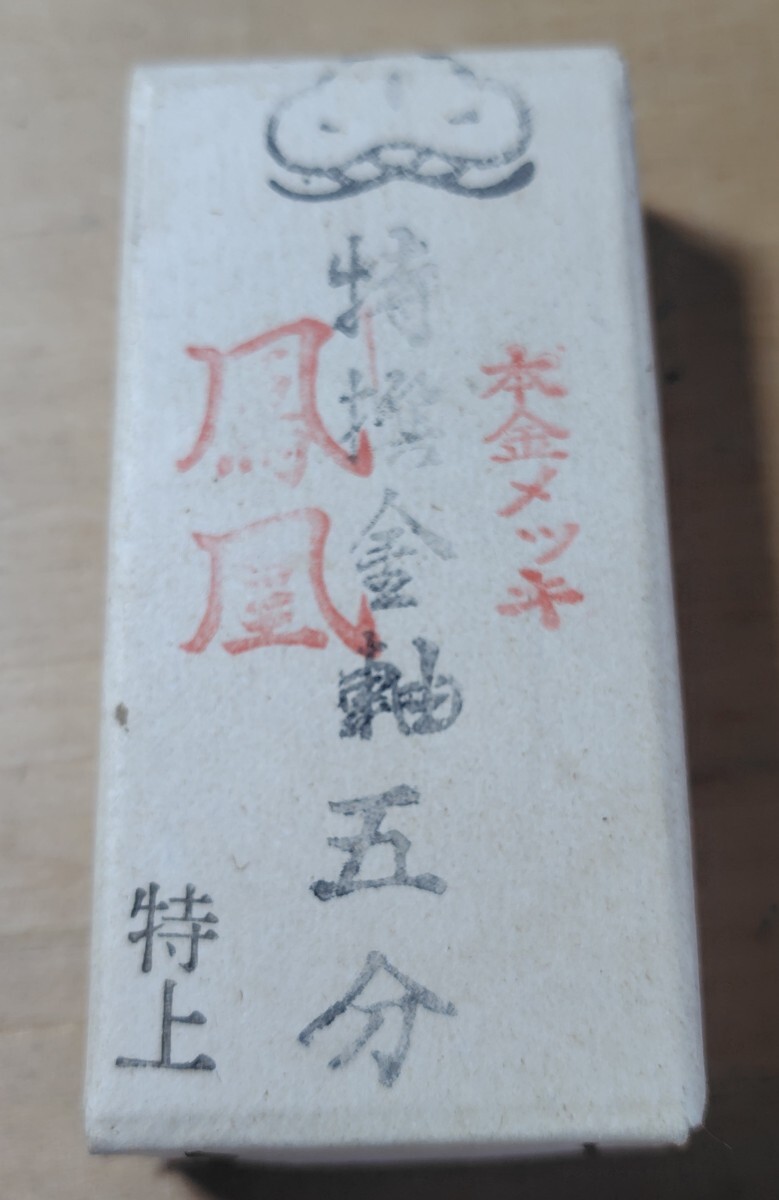 本金メッキ
特撰金軸五分
鳳凰
特上